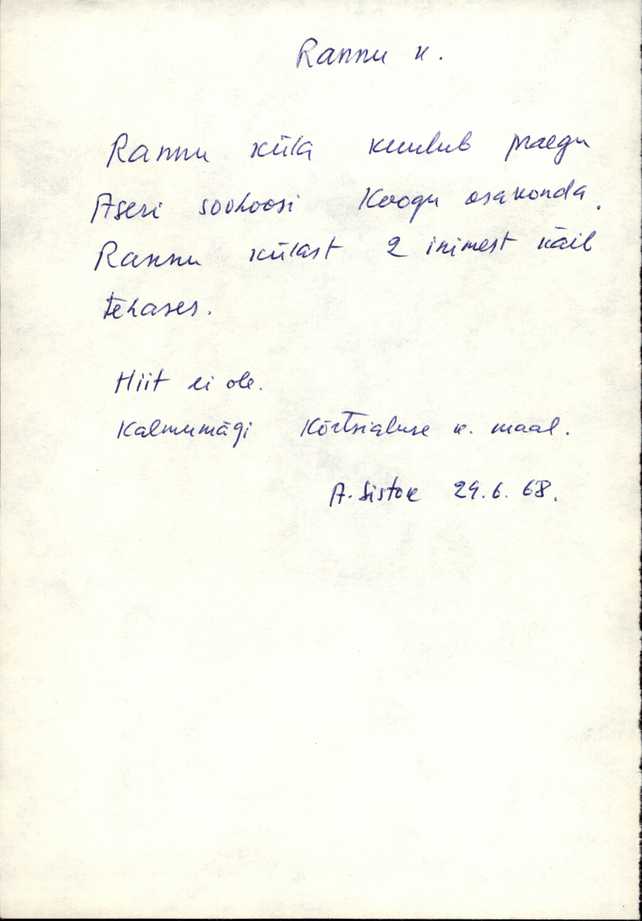 Rannu k.
Rannu küla kuulub praegu
Aseri sovhoosi Koogu osakonda.
Rannu külast 2 inimest käib
tehases.
Hiit ei ole.
Kalmumägi Kõrtsialuse k. maal.
A. Sistok 29.6.68.